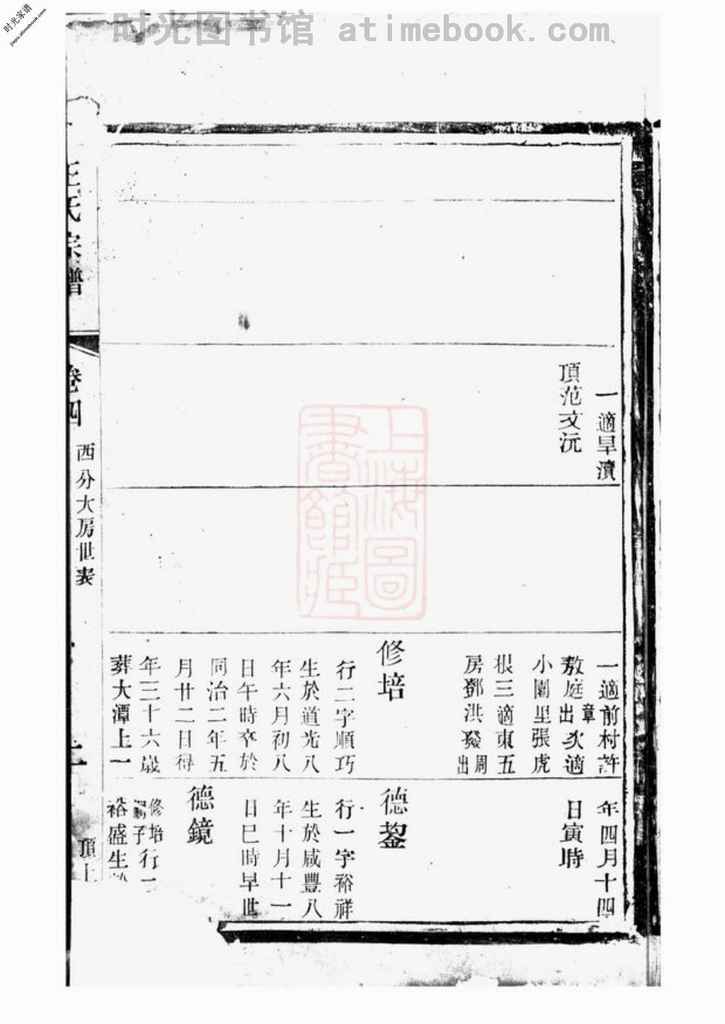 时光图书馆 atimebook.com
时光家谱
王氏宗譜
卷四
西分大房世表
頂上
一適旱瀆
頂范文沅
一適前村許
敖庭章出次適
小園里張虎
根三適東五
房鄧洪發周出
修培
行二字順巧
生於道光八
年六月初八
日午時卒於
同治二年五
月廿二日得
年三十六歲
葬大潭上一
年四月十四
日寅時
德鋆
行一字裕祥
生於咸豐八
年十月十一
日巳時早世
德鏡
修培子行一
裕盛生
上海圖書館藏